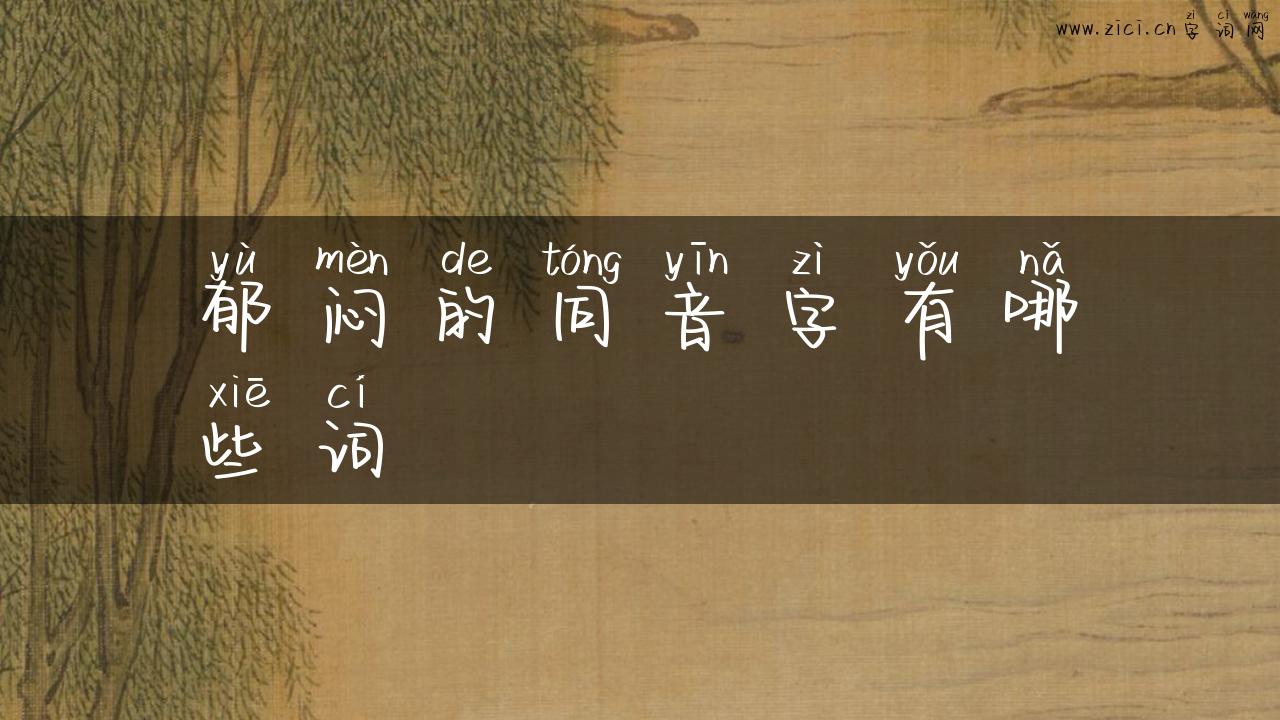 zì cí wǎng
www.zici.cn 字词网
yù mèn de tóng yīn zì yǒu nǎ
郁闷的同音字有哪
xiē cí
些词